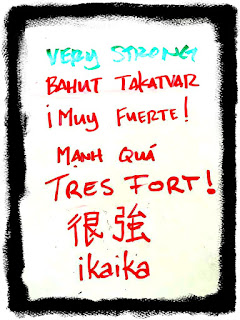 VERY STRONG
BAHUT TAKATVAR
¡MUY FUERTE!
MẠNH QUÁ
TRES FORT!
很強
ikaika